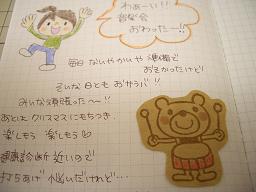 わぁーい!!
音楽会
おわったー!!
毎日 ないやかいや 準備で
おそかったけど
そんな日とも おサラバ!!
みんな頑張ったー!!
あとは クリスマスにもちつき
楽しもう 楽しもう
健康診断 近いので
打ちあげ 悩いだけれど…